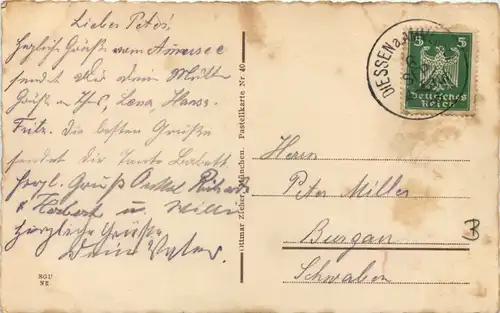 Lieber Peter!
herzliche Grüße vom Ammersee
sendet Dir dein Mutter
Grüße Lena, Hans
Fritz. Die besten Grüße
sendet dir Tante Babett
herzl. Gruß Onkel Richard
u. Herbert u. Willi
herzliche Grüße
Dein Vater.
Ottmar Zieher, München. Pastellkarte Nr. 40
DIESSEN a. AMM
5 5
Deutsches
Reich
Herrn
Peter Miller
Burgau
Schwaben
3